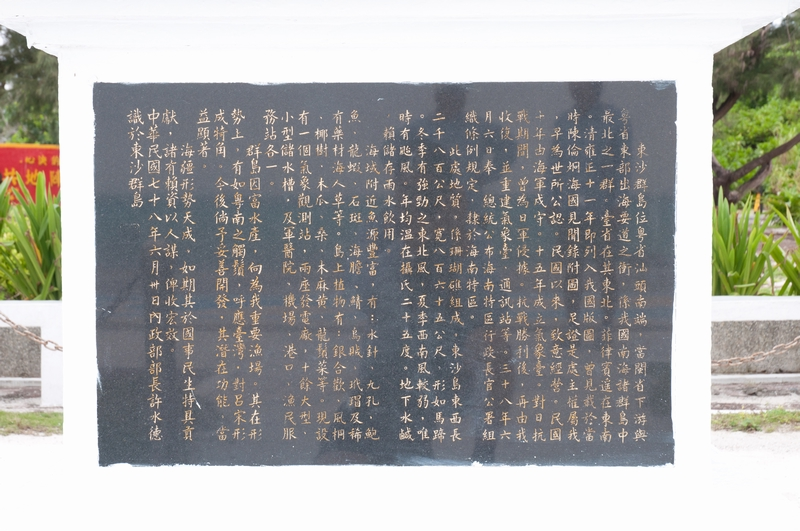 東沙群島位粵省汕頭南端，當閩省下游與
粵省東部出海要道之衝，係我國南海諸群島中
最北之一群。臺省在其東北。菲律賓遠在東南
。清雍正十一年即列入我國版圖，曾見載於當
時陳倫炯海國見聞錄附圖，足證是處主權屬我
，早為世所公認。民國以來，致意經營。民國
十年由海軍戍守。十五年成立氣象臺。對日抗
戰期間，曾為日軍侵據。抗戰勝利後，再由我
收復，並重建氣象臺、通訊站等。三十八年六
月六日奉　總統公布海南特區行政長官公署組
織條例規定，隸於海南特區。
此處地質，係珊瑚礁組成，東沙島東西長
二千八百公尺，寬八百六十五公尺，形如馬蹄
。冬季有強勁之東北風，夏季西南風較弱，唯
時有颱風。年均溫在攝氏二十五度。地下水鹹
，賴儲存雨水飲用。
海域附近魚源豐富，有：水針、九孔、鮑
魚、龍蝦、石斑、海膽、鯖、烏賊、玳瑁及稀
有藥材海人草等。島上植物有：銀合歡、瓊桐
、椰樹、木瓜、桑、木麻黃、龍鬚菜等。現設
有一個氣象觀測站，兩座發電廠，十餘大型、
小型儲水槽，及軍醫院、機場、港口、漁民服
務站各一。
群島因富水產，向為我重要漁場。其在形
勢上，有如粵南之觸鬚，呼應臺灣，對呂宋形
成犄角，今後倘予妥善開發，其潛在功能，當
益顯著。
海疆形勢天成，如期其於國事民生持其貢
獻，諸有賴資以人謀，俾收宏效。
中華民國七十八年六月卅日內政部部長許水德
識於東沙群島